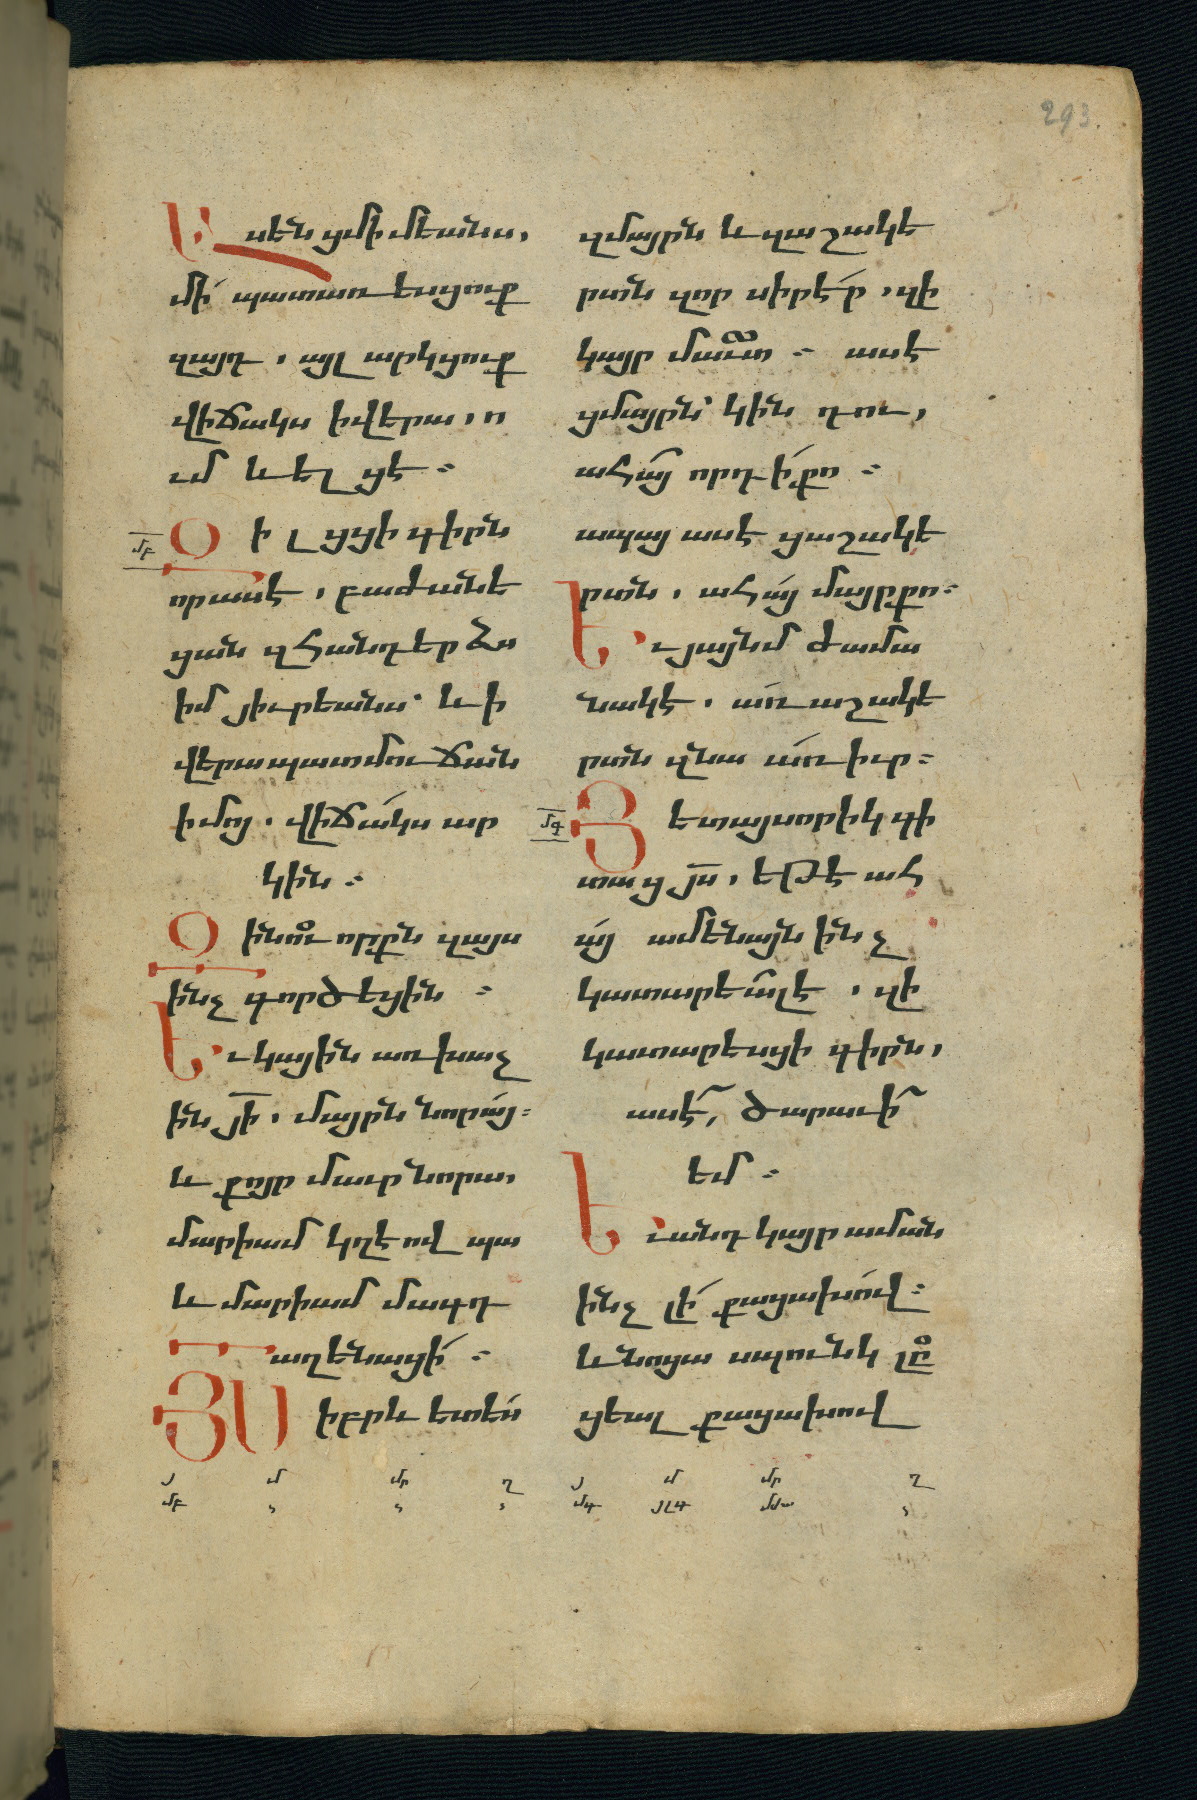 293
Ասեն ցմիմեանս,
մի՛ պատառեսցուք
զայդ, այլ արկցուք
վիճակս իվերա, ո
ւմ և ել ցէ։
մբ
Զի լցցի գիրն
որասէ, բաժանե
ցան զհանդերձս
իմ յիւրեանս՝ և ի
վերա պատմուճան
իմոյ. վիճակս ար
կին։
Զինուորքն զայս
ինչ գործեցին ։
Եւ կային առ խաչ
ին յի, մայրն նորայ։
և քոյր մաւր նորա,
մարիամ կղէովպա
և մարիամ մագդ
աղենացի ։
ՅՍ իբրև ետես
զմայրն և զաշակե
րտն զոր սիրէր, զի
կայր մաւտ ։ ասէ
ցմայրն՝ կին դու,
ահա՛յ որդի՛ քո ։
ապայ ասէ ցաշակե
րտն, ահա՛յ մայր քո։
Եւ յայնմ ժամա
նակէ, առ աշակե
րտն զնա առ իւր։
մգ
Յետ այսորիկ գի
տաց յս, եթէ ահ
այ ամենայն ինչ
կատարեալ է, զի
կատարեսցի գիրն,
ասէ, ծարաւի
եմ ։
Եւ անդ կայր աման
ինչ լի՛ քացախով։
և նոցա սպունկ լը
ցեալ քացախով
յ մ մր ղ
մբ
յ մ մր ղ
մգ յլգ